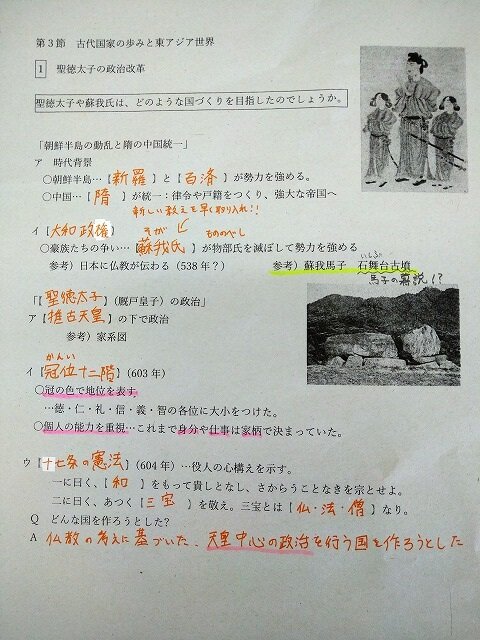 第3節　古代国家の歩みと東アジア世界
1　聖徳太子の政治改革
聖徳太子や蘇我氏は、どのような国づくりを目指したのでしょうか。
「朝鮮半島の動乱と隋の中国統一」
ア　時代背景
○朝鮮半島…【新羅】と【百済】が勢力を強める。
○中国…【隋】が統一：律令や戸籍をつくり、強大な帝国へ
新しい教えを早く取り入れ!!
イ【大和政権】
そが　もののべし
○豪族たちの争い…【蘇我氏】が物部氏を滅ぼして勢力を強める
参考）日本に仏教が伝わる（538年？）
参考）蘇我馬子　石舞台古墳
いしぶ
馬子の墓説!?
「【聖徳太子】（厩戸皇子）の政治」
ア【推古天皇】の下で政治
参考）家系図
かんい
イ【冠位十二階】（603年）
○冠の色で地位を表す。
…徳・仁・礼・信・義・智の各位に大小をつけた。
○個人の能力を重視…これまで身分や仕事は家柄で決まっていた。
ウ【十七条の憲法】（604年）…役人の心構えを示す。
一に曰く、【和】をもって貴しとなし、さからうことなきを宗とせよ。
二に曰く、あつく【三宝】を敬え。三宝とは【仏・法・僧】なり。
Q　どんな国を作ろうとした？
A　仏教の考えに基づいた、天皇中心の政治を行う国を作ろうとした